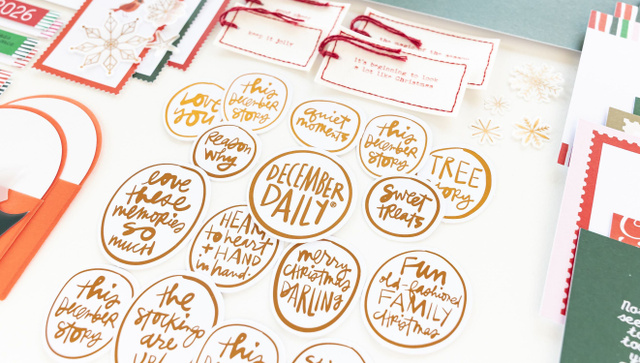 2026
keep it jolly
the magic of the season
it's beginning to look
a lot like Christmas
Love
you
this
December
story
quiet
moments
this
December
story
TREE
Reason
why
DECEMBER
DAILY®
sweet
treats
love
these
memories
so
much
HEART
to heart
+ HAND
in hand.
merry
Christmas
DARLING
Fun
old-fashioned
FAMILY
Christmas
this
December
story
the
stockings
are
this